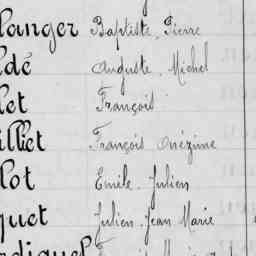 langer Baptiste, Pierre
ldé Auguste, Michel
let François
illiet François Onézime
lot Emile, Julien
quet Julien, Jean Marie